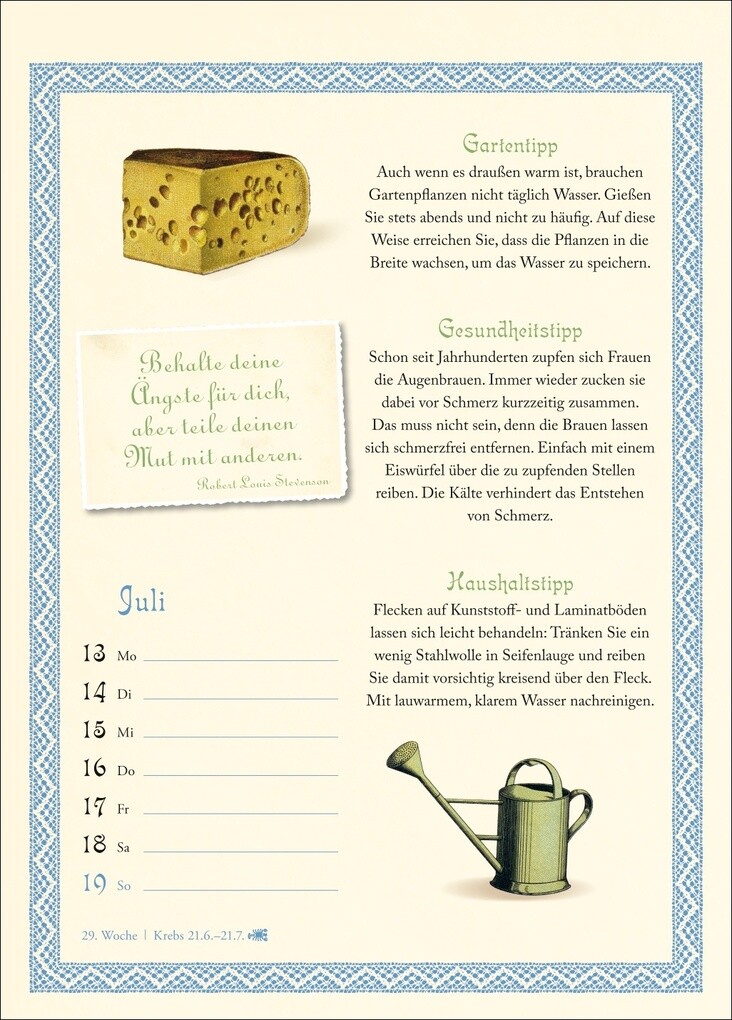 Gartentipp
Auch wenn es draußen warm ist, brauchen
Gartenpflanzen nicht täglich Wasser. Gießen
Sie stets abends und nicht zu häufig. Auf diese
Weise erreichen Sie, dass die Pflanzen in die
Breite wachsen, um das Wasser zu speichern.
Behalte deine
Ängste für dich,
aber teile deinen
Mut mit anderen.
Robert Louis Stevenson
Gesundheitstipp
Schon seit Jahrhunderten zupfen sich Frauen
die Augenbrauen. Immer wieder zucken sie
dabei vor Schmerz kurzzeitig zusammen.
Das muss nicht sein, denn die Brauen lassen
sich schmerzfrei entfernen. Einfach mit einem
Eiswürfel über die zu zupfenden Stellen
reiben. Die Kälte verhindert das Entstehen
von Schmerz.
Haushaltstipp
Flecken auf Kunststoff- und Laminatböden
lassen sich leicht behandeln: Tränken Sie ein
wenig Stahlwolle in Seifenlauge und reiben
Sie damit vorsichtig kreisend über den Fleck.
Mit lauwarmem, klarem Wasser nachreinigen.
Juli
13 Mo
14 Di
15 Mi
16 Do
17 Fr
18 Sa
19 So
29. Woche | Krebs 21.6.–21.7.